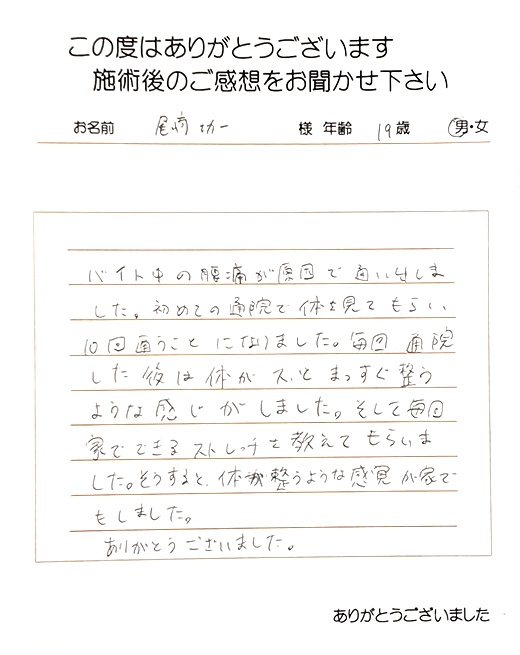 この度はありがとうございます
施術後のご感想をお聞かせ下さい
お名前 尾崎 功一 様 年齢 19歳 男・女
バイト中の腰痛が原因で通い出しま
した。初めての通院で体を見てもらい、
10回通うことになりました。毎回 通院
した後は体がスッとまっすぐ整う
ような感じがしました。そして毎回
家でできるストレッチを教えてもらいま
した。そうすると、体が整うような感覚が家で
もしました。
ありがとうございました。
ありがとうございました